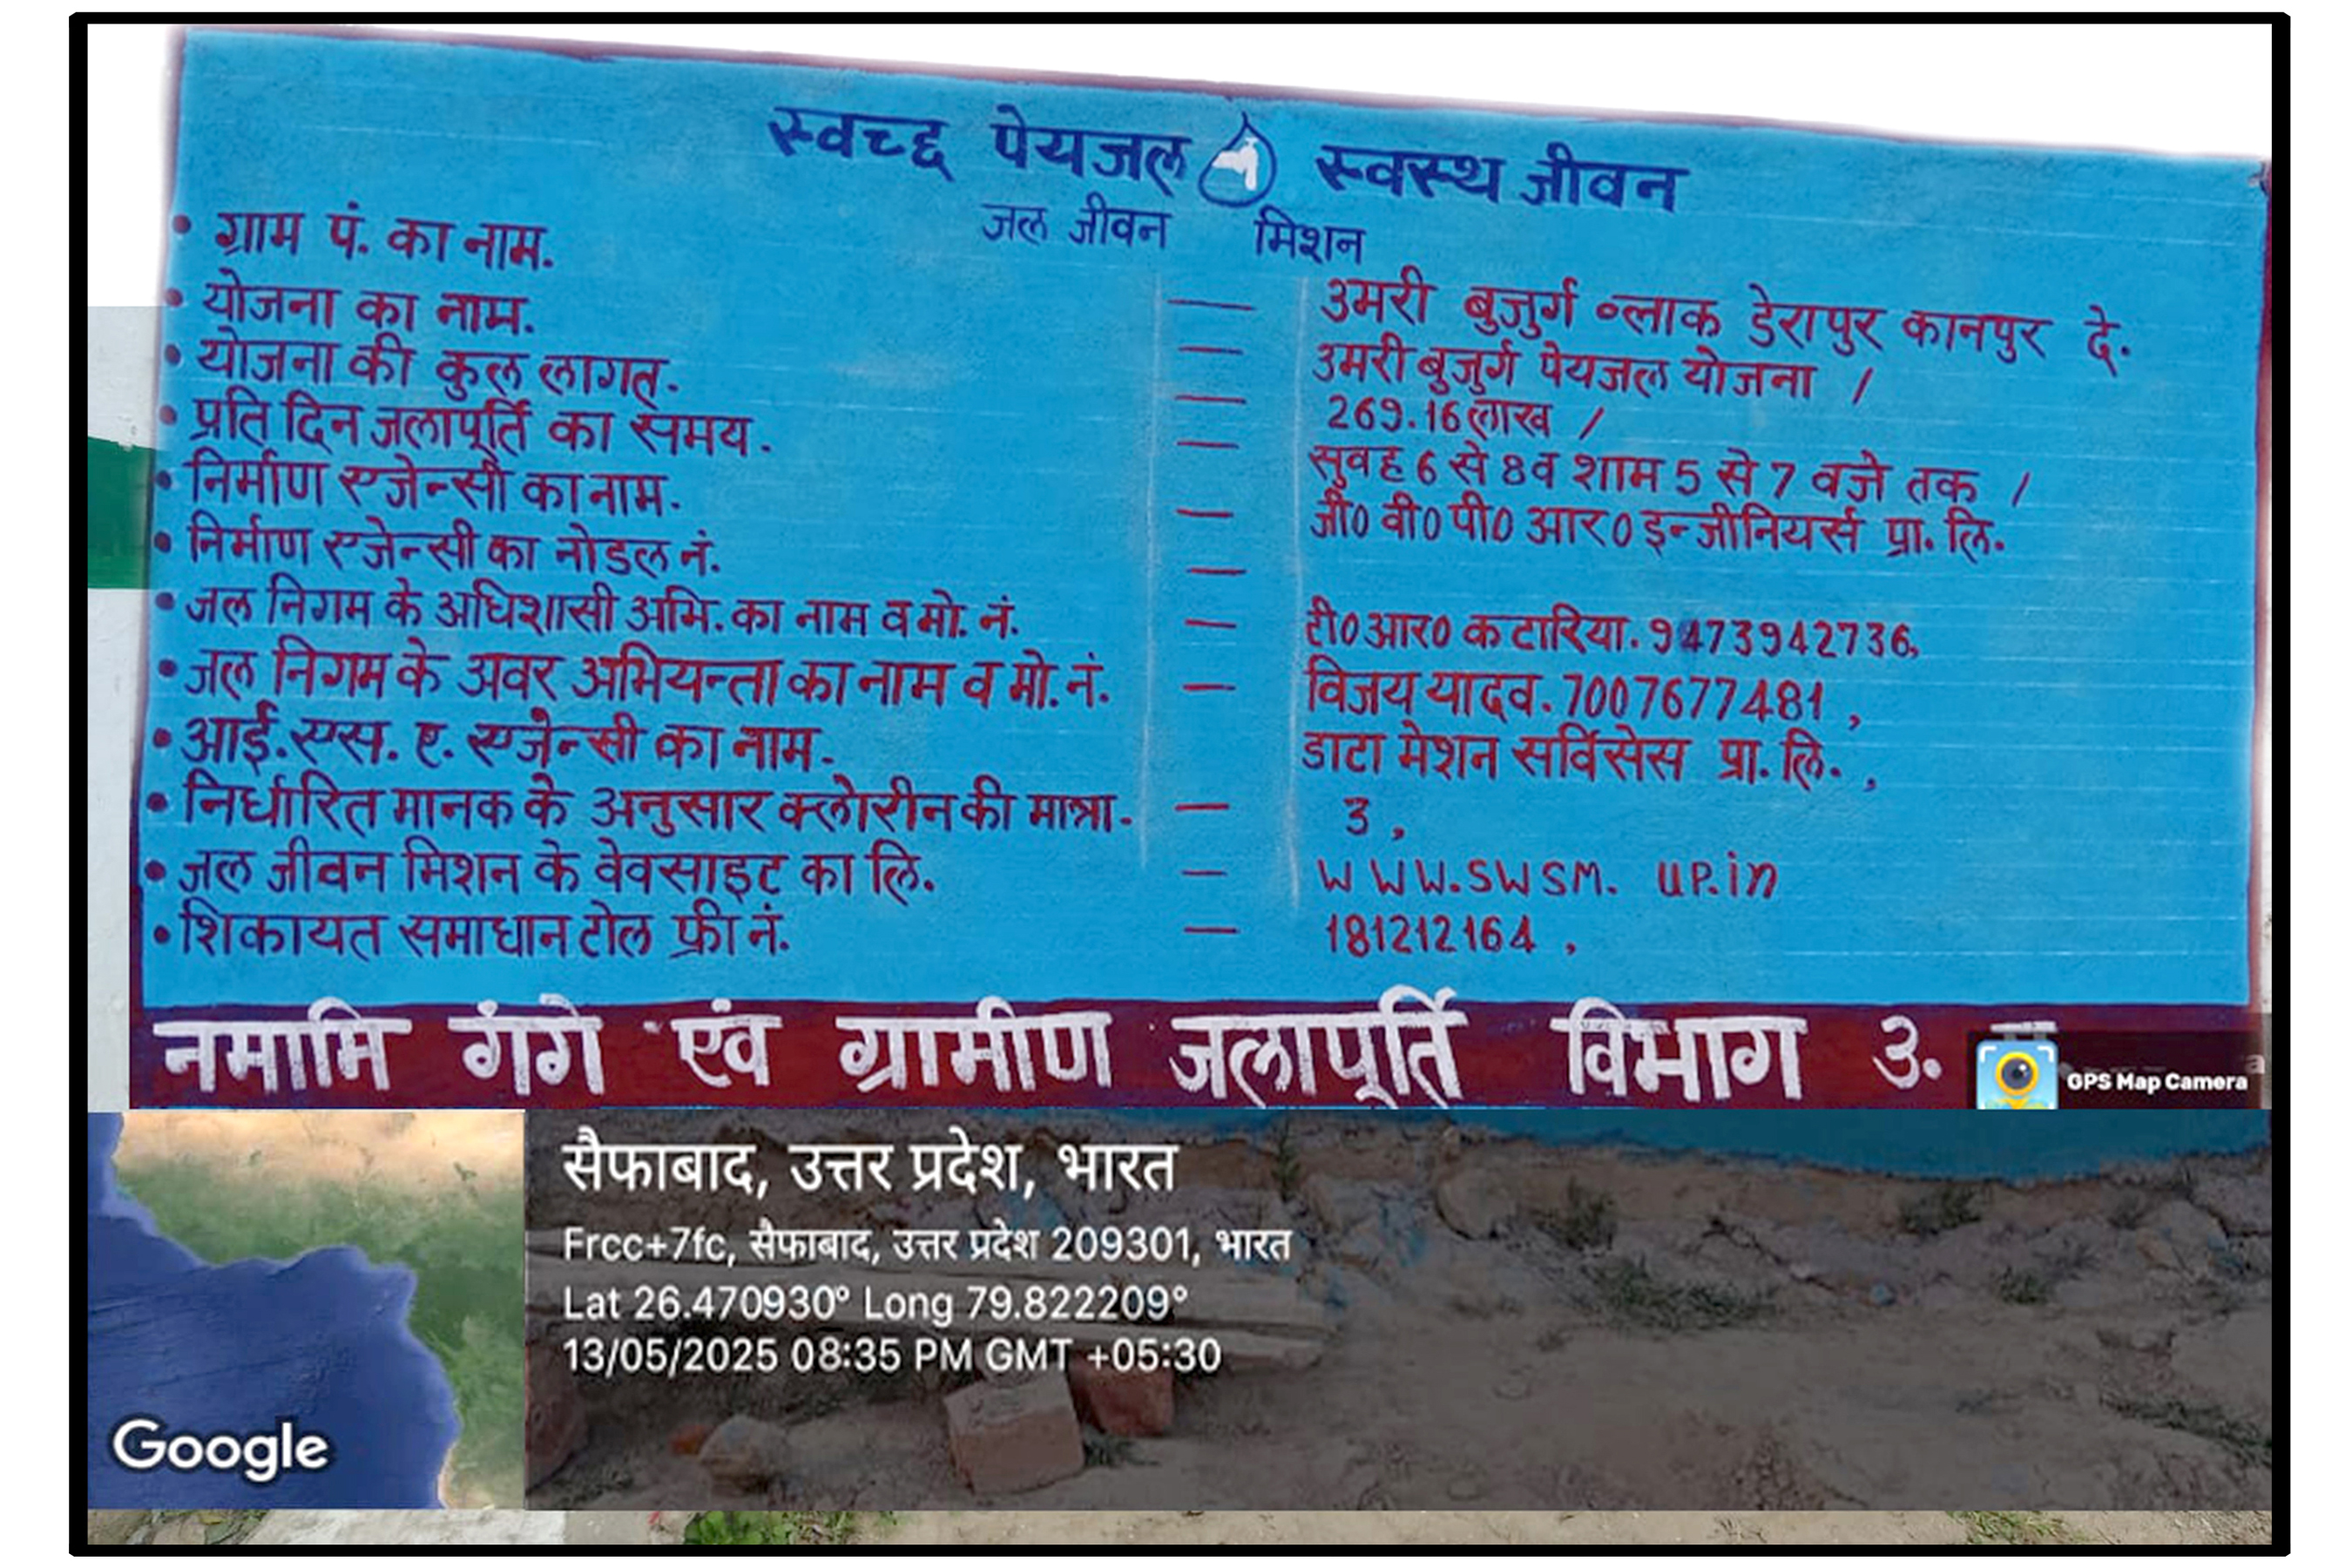 स्वच्छ पेयजल स्वस्थ जीवन
जल जीवन मिशन
• ग्राम पं. का नाम. — उमरी बुजुर्ग ब्लाक डेरापुर कानपुर दे.
• योजना का नाम. — उमरी बुजुर्ग पेयजल योजना /
• योजना की कुल लागत. — 269.16 लाख /
• प्रति दिन जलापूर्ति का समय. — सुवह 6 से 8 व शाम 5 से 7 वजे तक /
• निर्माण एजेन्सी का नाम. — जी0 वी0 पी0 आर0 इन्जीनियर्स प्रा. लि.
• निर्माण एजेन्सी का नोडल नं. —
• जल निगम के अधिशासी अभि. का नाम व मो. नं. — टी0 आर0 कटारिया. 9473942736,
• जल निगम के अवर अभियन्ता का नाम व मो. नं. — विजय यादव. 7007677481 ,
• आई.एस. ए. एजेन्सी का नाम. डाटा मेशन सर्विसेस प्रा. लि. ,
• निर्धारित मानक के अनुसार क्लोरीन की मात्रा. — 3 ,
• जल जीवन मिशन के वेवसाइट का लि. — WWW.SWSM. UP.in
• शिकायत समाधान टोल फ्री नं. — 181212164 ,
नमामि गंगे एंव ग्रामीण जलापूर्ति विभाग उ.
GPS Map Camera
सैफाबाद, उत्तर प्रदेश, भारत
Frcc+7fc, सैफाबाद, उत्तर प्रदेश 209301, भारत
Lat 26.470930° Long 79.822209°
13/05/2025 08:35 PM GMT +05:30
Google